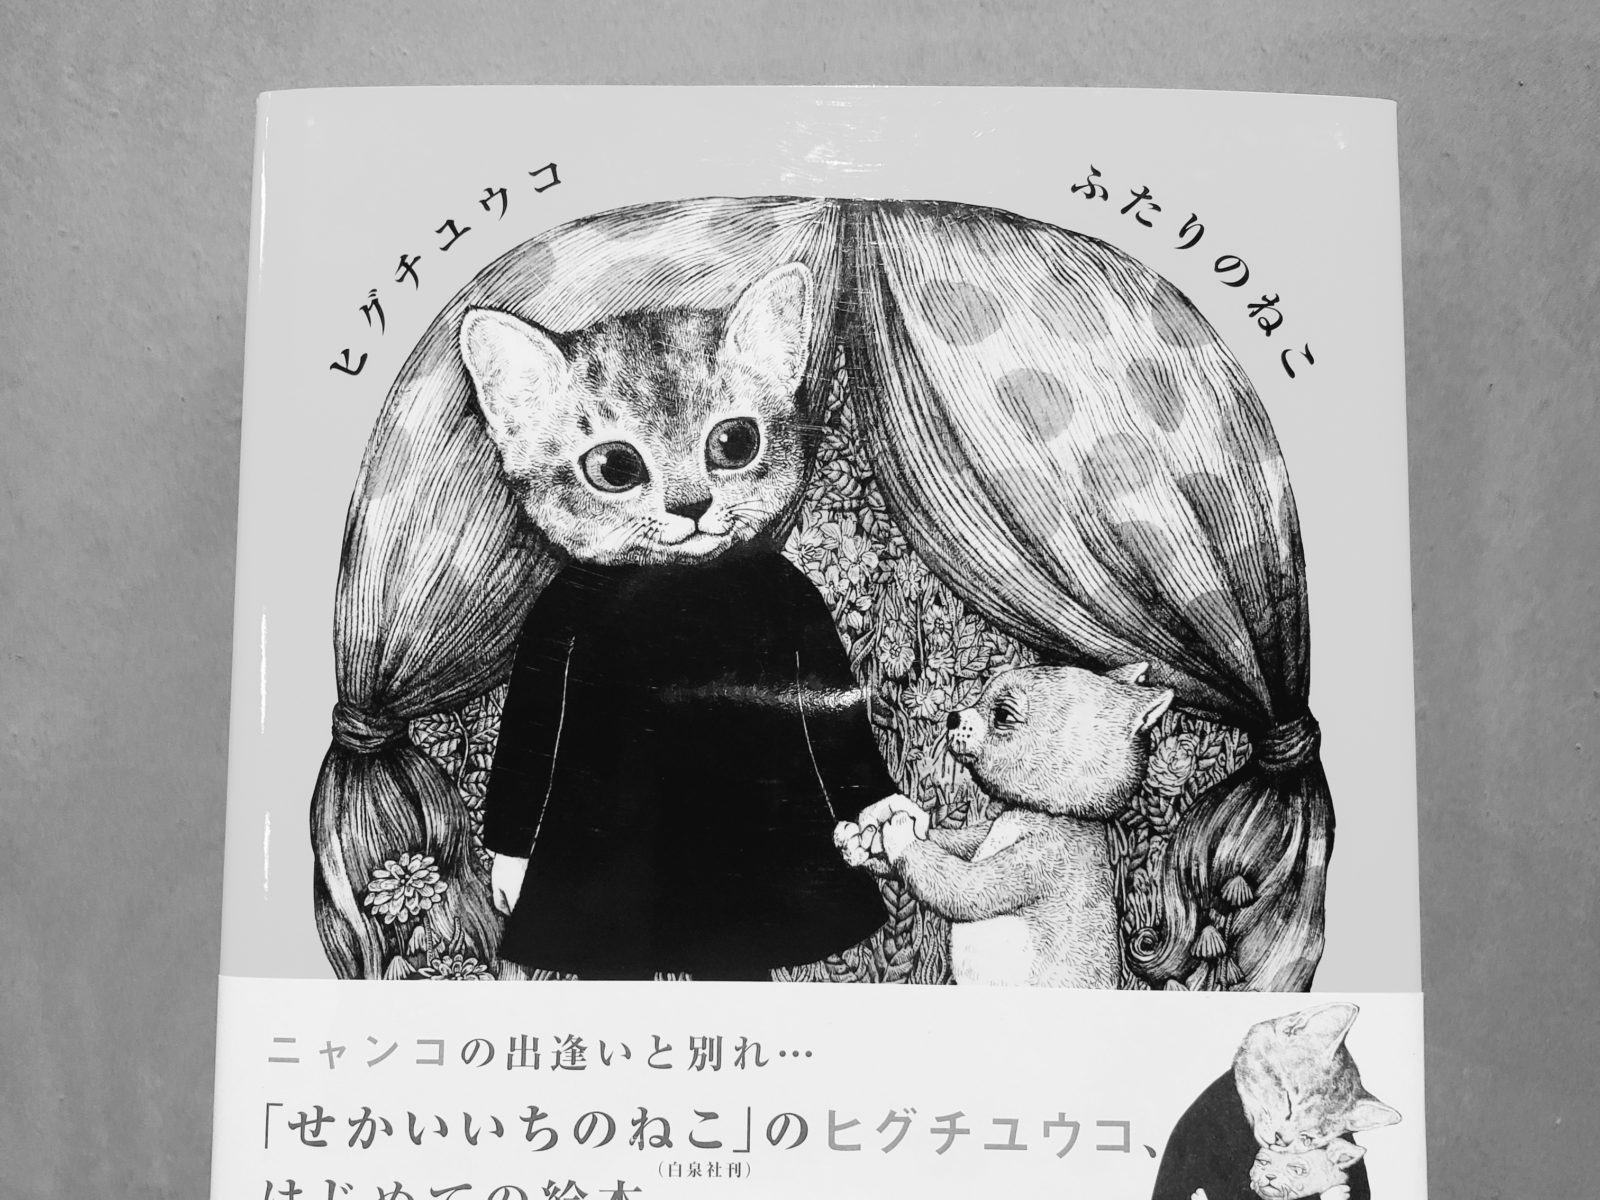 ヒグチユウコ
ふたりのねこ
ニャンコの出逢いと別れ…
「せかいいちのねこ」のヒグチユウコ、
（白泉社刊）
はじめての絵本